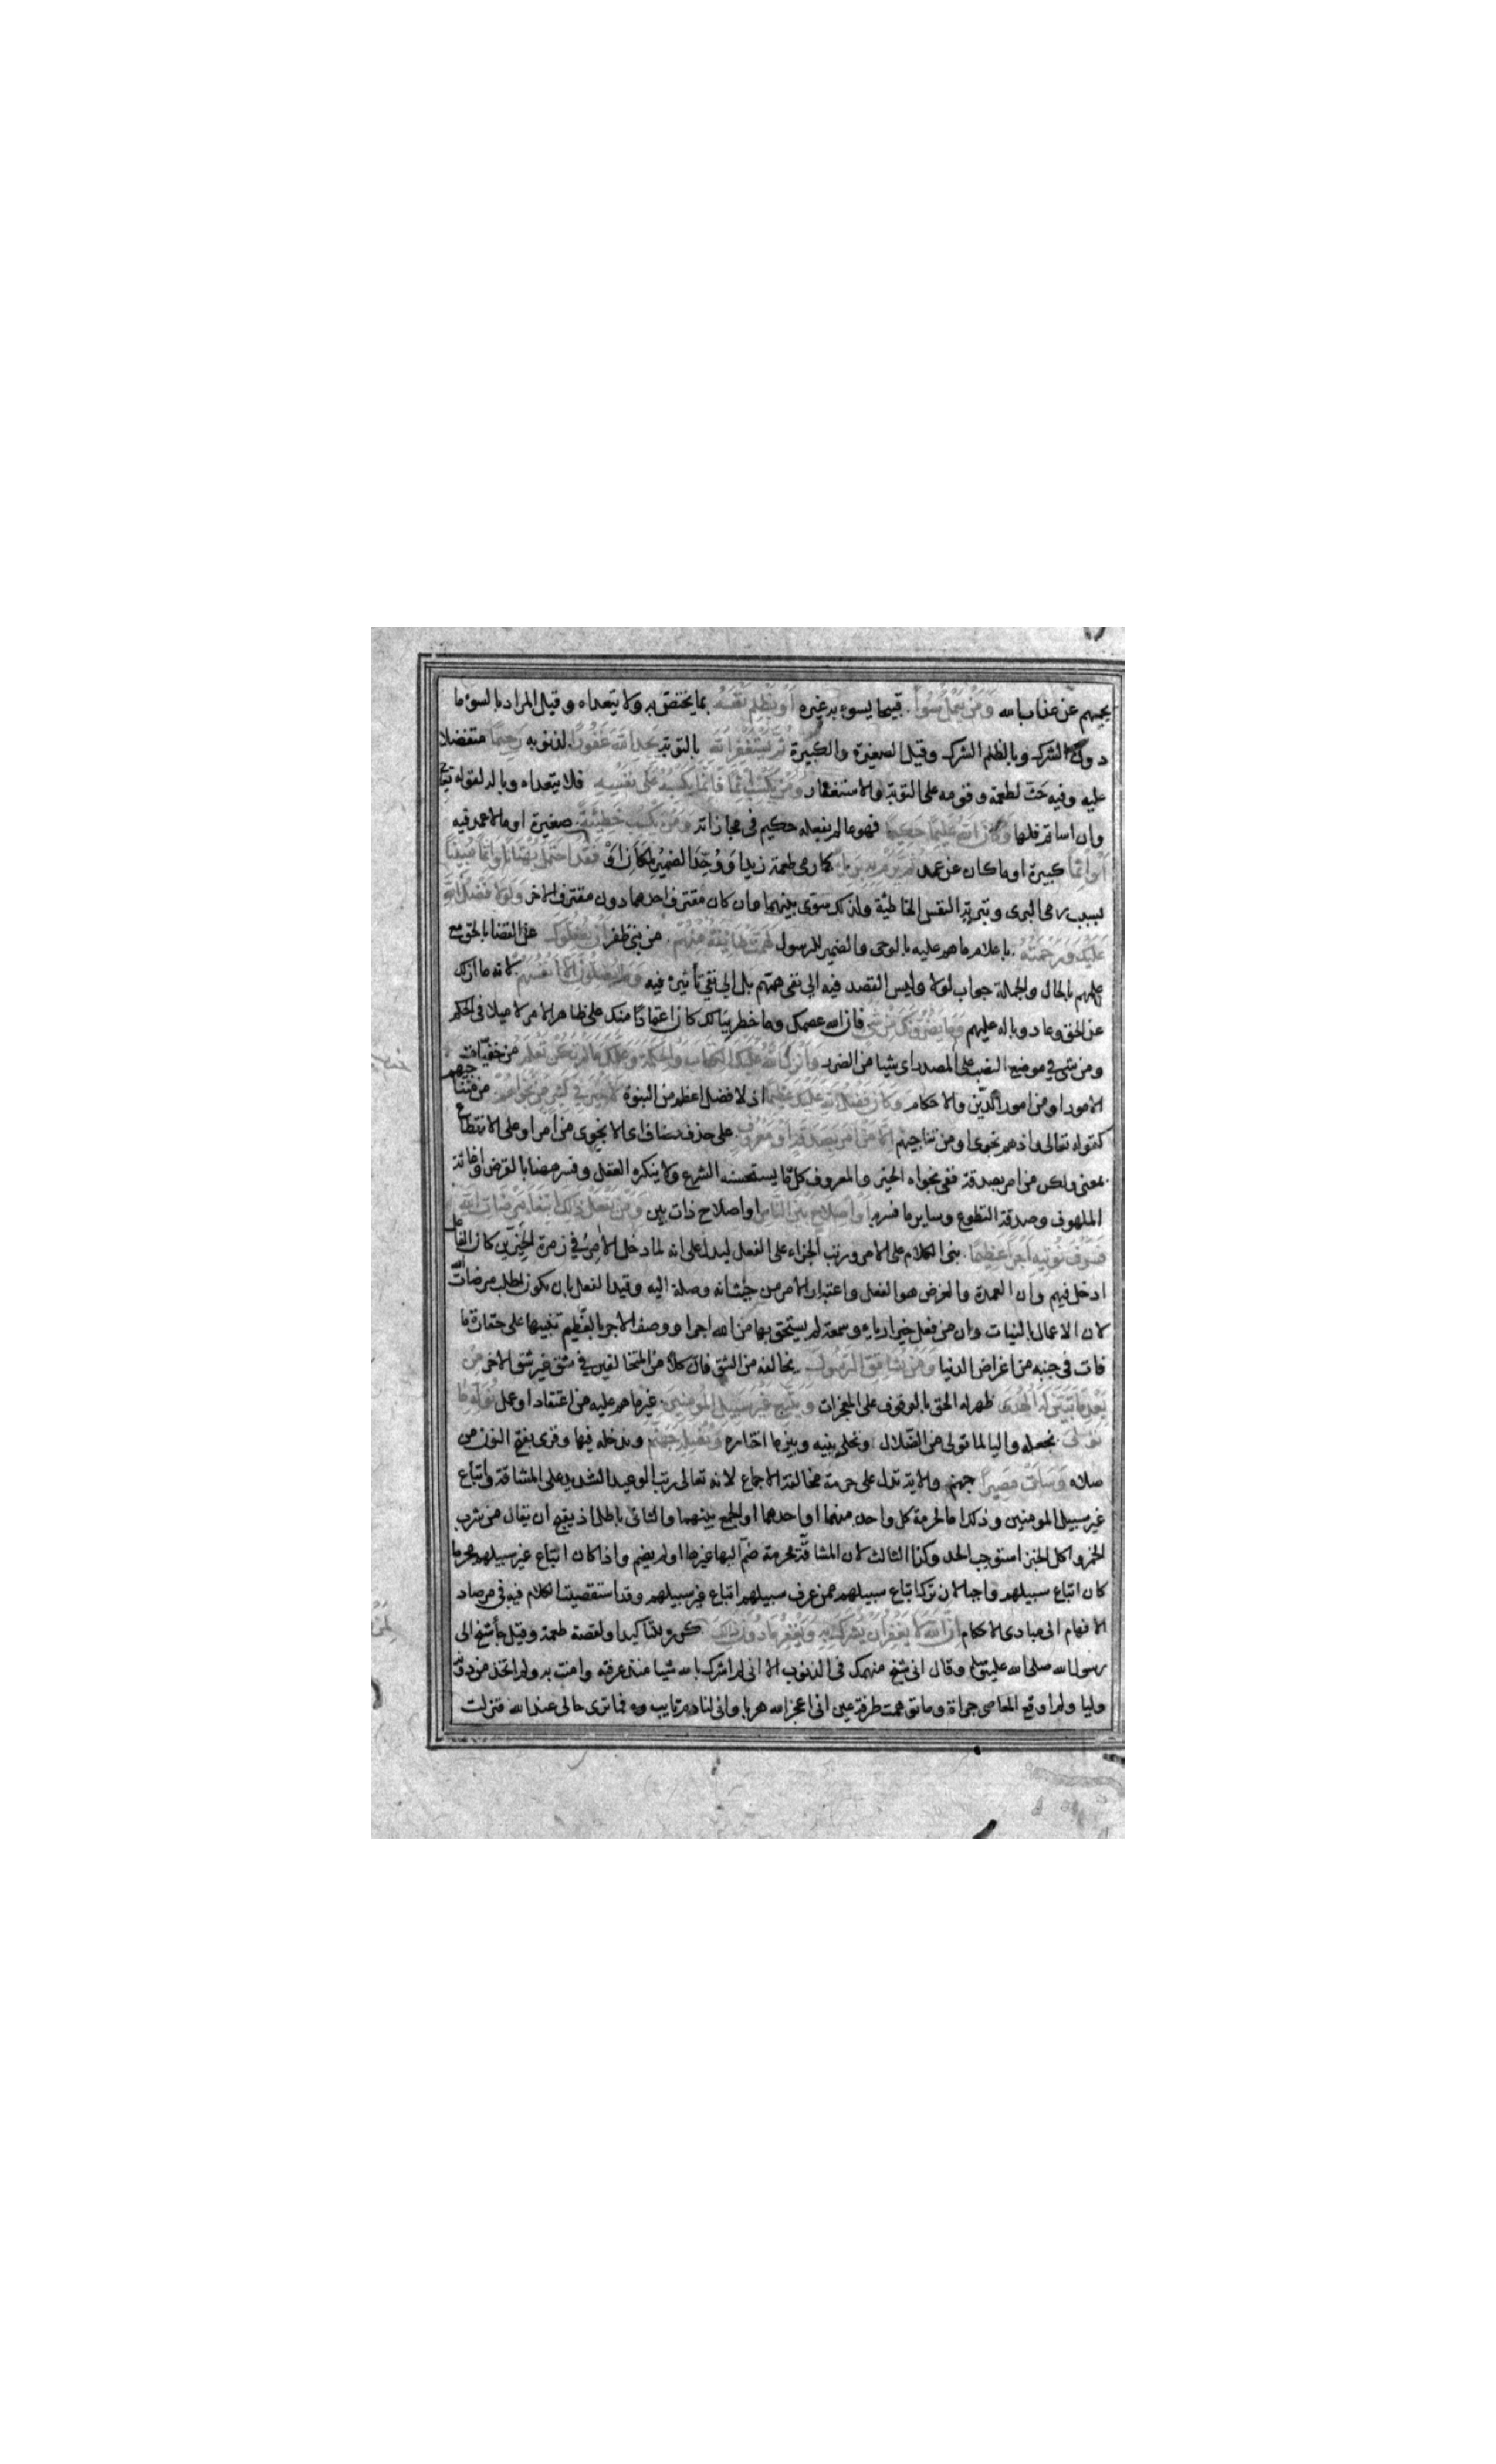 يحميهم عن عذاب الله وَمَنْ يَعْمَلْ سُوءًا قبيحا يسوء به غيره اَوْ يَظْلِمْ نَفْسَهُ بما يختص به ولا يتعداه وقيل المراد بالسوء ما
دون الشرك وبالظلم الشرك وقيل الصغيرة والكبيرة ثُمَّ يَسْتَغْفِرِ اللهَ بالتوبة يَجِدِ اللهَ غَفُورًا لذنوبه رَحِيمًا متفضلا
عليه وفيه حث لطعمة وقومه على التوبة والاستغفار وَمَنْ يَكْسِبْ اِثْمًا فَاِنَّمَا يَكْسِبُهُ عَلَى نَفْسِهِ فلا يتعداه وباله لقوله
وان اساتم فلها وَكَانَ اللهُ عَلِيمًا حَكِيمًا فهو عالم بفعله حكيم في مجازاته وَمَنْ يَكْسِبْ خَطِيئَةً صغيرة او ما لا عمد فيه
اَوْ اِثْمًا كبيرة او ما كان عن عمد ثُمَّ يَرْمِ بِهِ بَرِيئًا كما رمى طعمة زيدا وَوُحِّدَ الضمير لمكان اَوْ فَقَدِ احْتَمَلَ بُهْتَانًا وَاِثْمًا مُبِينًا
بسبب رمى البرى وتبرية النفس الخاطئة ولذلك سوّى بينهما وان كان مقترف احدهما دون مقترف الاخر وَلَوْلَا فَضْلُ اللهِ
عَلَيْكَ وَرَحْمَتُهُ باعلام ما هم عليه بالوحى والضمير للرسول لَهَمَّتْ طَائِفَةٌ مِنْهُمْ من بنى ظفر اَنْ يُضِلُّوكَ عن القضا بالحق مع
علمهم بالحال والجملة جواب لولا وليس القصد فيه الى نفى همتهم بل الى نفى تأثيره فيه وَمَا يُضِلُّونَ اِلَّا اَنْفُسَهُمْ لانه ما ازلك
عن الحق وعاد وباله عليهم وَمَا يَضُرُّونَكَ مِنْ شَيْءٍ فان الله عصمك وما خطر ببالك كان اعتمادًا منك على ظاهر الامر لا ميلا فى الحكم
ومن شى في موضع النصب على المصدر اى شيا من الضرر وَاَنْزَلَ اللهُ عَلَيْكَ الْكِتَابَ وَالْحِكْمَةَ وَعَلَّمَكَ مَا لَمْ تَكُنْ تَعْلَمُ من خفيّات
الامور او من امور الدّين والاحكام وَكَانَ فَضْلُ اللهِ عَلَيْكَ عَظِيمًا اذ لا فضل اعظم من النبوة لَا خَيْرَ فِي كَثِيرٍ مِنْ نَجْوَاهُمْ من متناجيهم
كقوله تعالى واذهم نجوى او من تناجيهم اِلَّا مَنْ اَمَرَ بِصَدَقَةٍ اَوْ مَعْرُوفٍ على حذف مضاف اى الا نجوى من امر او على الانقطاع
بمعنى ولكن من امر بصدقة ففى نجواه الخير والمعروف كل ما يستحسنه الشرع ولا ينكره العقل وفسر هنا بالقرض واغاثة
الملهوف وصدقة التطوع وساير ما فسر به اَوْ اِصْلَاحٍ بَيْنَ النَّاسِ او اصلاح ذات بين وَمَنْ يَفْعَلْ ذَلِكَ ابْتِغَاءَ مَرْضَاتِ اللهِ
فَسَوْفَ نُؤْتِيهِ اَجْرًا عَظِيمًا بنى الكلام على الامر ورتب الجزاء على الفعل ليدل على انه لما دخل الامر في زمرة الخيّرين كان الفاعل
ادخل فيهم وان العمدة والغرض هو الفعل واعتبار الامر من حيث انه وصلة اليه وقيد الفعل بان يكون لطلب مرضات الله
لان الاعمال بالنيات وان من فعل خيرا رياء وسمعة لم يستحق بها من الله اجرا ووصف الاجر بالعظيم تنبيها على حقارة ما
فات فى جنبه من اغراض الدنيا وَمَنْ يُشَاقِقِ الرَّسُولَ يخالفه من الشق فان كلا من المتخالفين في شق غير شق الاخر مِنْ
بَعْدِ مَا تَبَيَّنَ لَهُ الْهُدَى ظهر له الحق بالوقوف على المعجزات وَيَتَّبِعْ غَيْرَ سَبِيلِ الْمُؤْمِنِينَ غير ما هم عليه من اعتقاد او عمل نُوَلِّهِ مَا
تَوَلَّى نجعله واليا لما تولى من الضّلال ونخلى بينه وبين ما اختاره وَنُصْلِهِ جَهَنَّمَ وندخله فيها وقرى بفتح النون من
صلاه وَسَاءَتْ مَصِيرًا جهنم والاية تدل على حرمة مخالفة الاجماع لانه تعالى رتب الوعيد الشديد على المشاقة واتباع
غير سبيل المومنين وذلك اما لحرمة كل واحد منهما او احدهما او الجمع بينهما والثانى باطل اذ يقبح ان يقال من شرب
الخمر واكل الخبز استوجب الحد وكذا الثالث لان المشاقّة محرمة ضمّ اليها غيرها اولم يضم واذا كان اتباع غير سبيلهم محرما
كان اتباع سبيلهم واجبا لان ترك اتباع سبيلهم ممن عرف سبيلهم اتباع غير سبيلهم وقد استقصيت الكلام فيه في مرصاد
الافهام الى مبادى الاحكام اِنَّ اللهَ لَا يَغْفِرُ اَنْ يُشْرَكَ بِهِ وَيَغْفِرُ مَا دُونَ ذَلِكَ كرره تاكيدا ولقصة طعمة وقيل جأ شيخ الى
رسول الله صلى الله عليه وقال انى شيخ منهمك فى الذنوب الا انى لم اشرك بالله شيا منذ عرفته وامنت به ولم اتخذ من دونه
وليا ولم اوقع المعاصى جراة وما توهمت طرفة عين انى اعجز الله هربا وانى لنادم تايب فما ترى حالى عند الله فنزلت